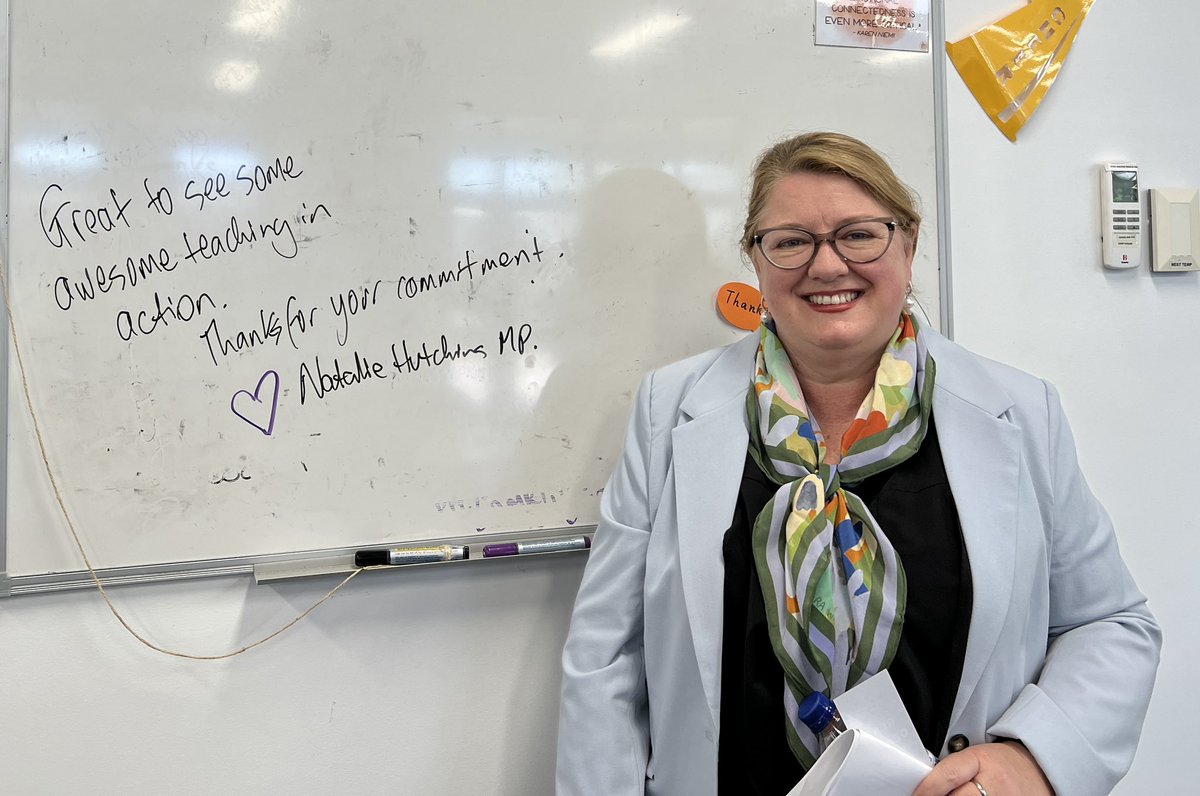 CONNECTEDNESS IS
EVEN MORE CRITICAL"
- KAREN NIEMI
Great to see some
awesome teaching in
action.
Thanks for your commitment.
Natalie Hutchins MP.
Thank
NEXT TEMP